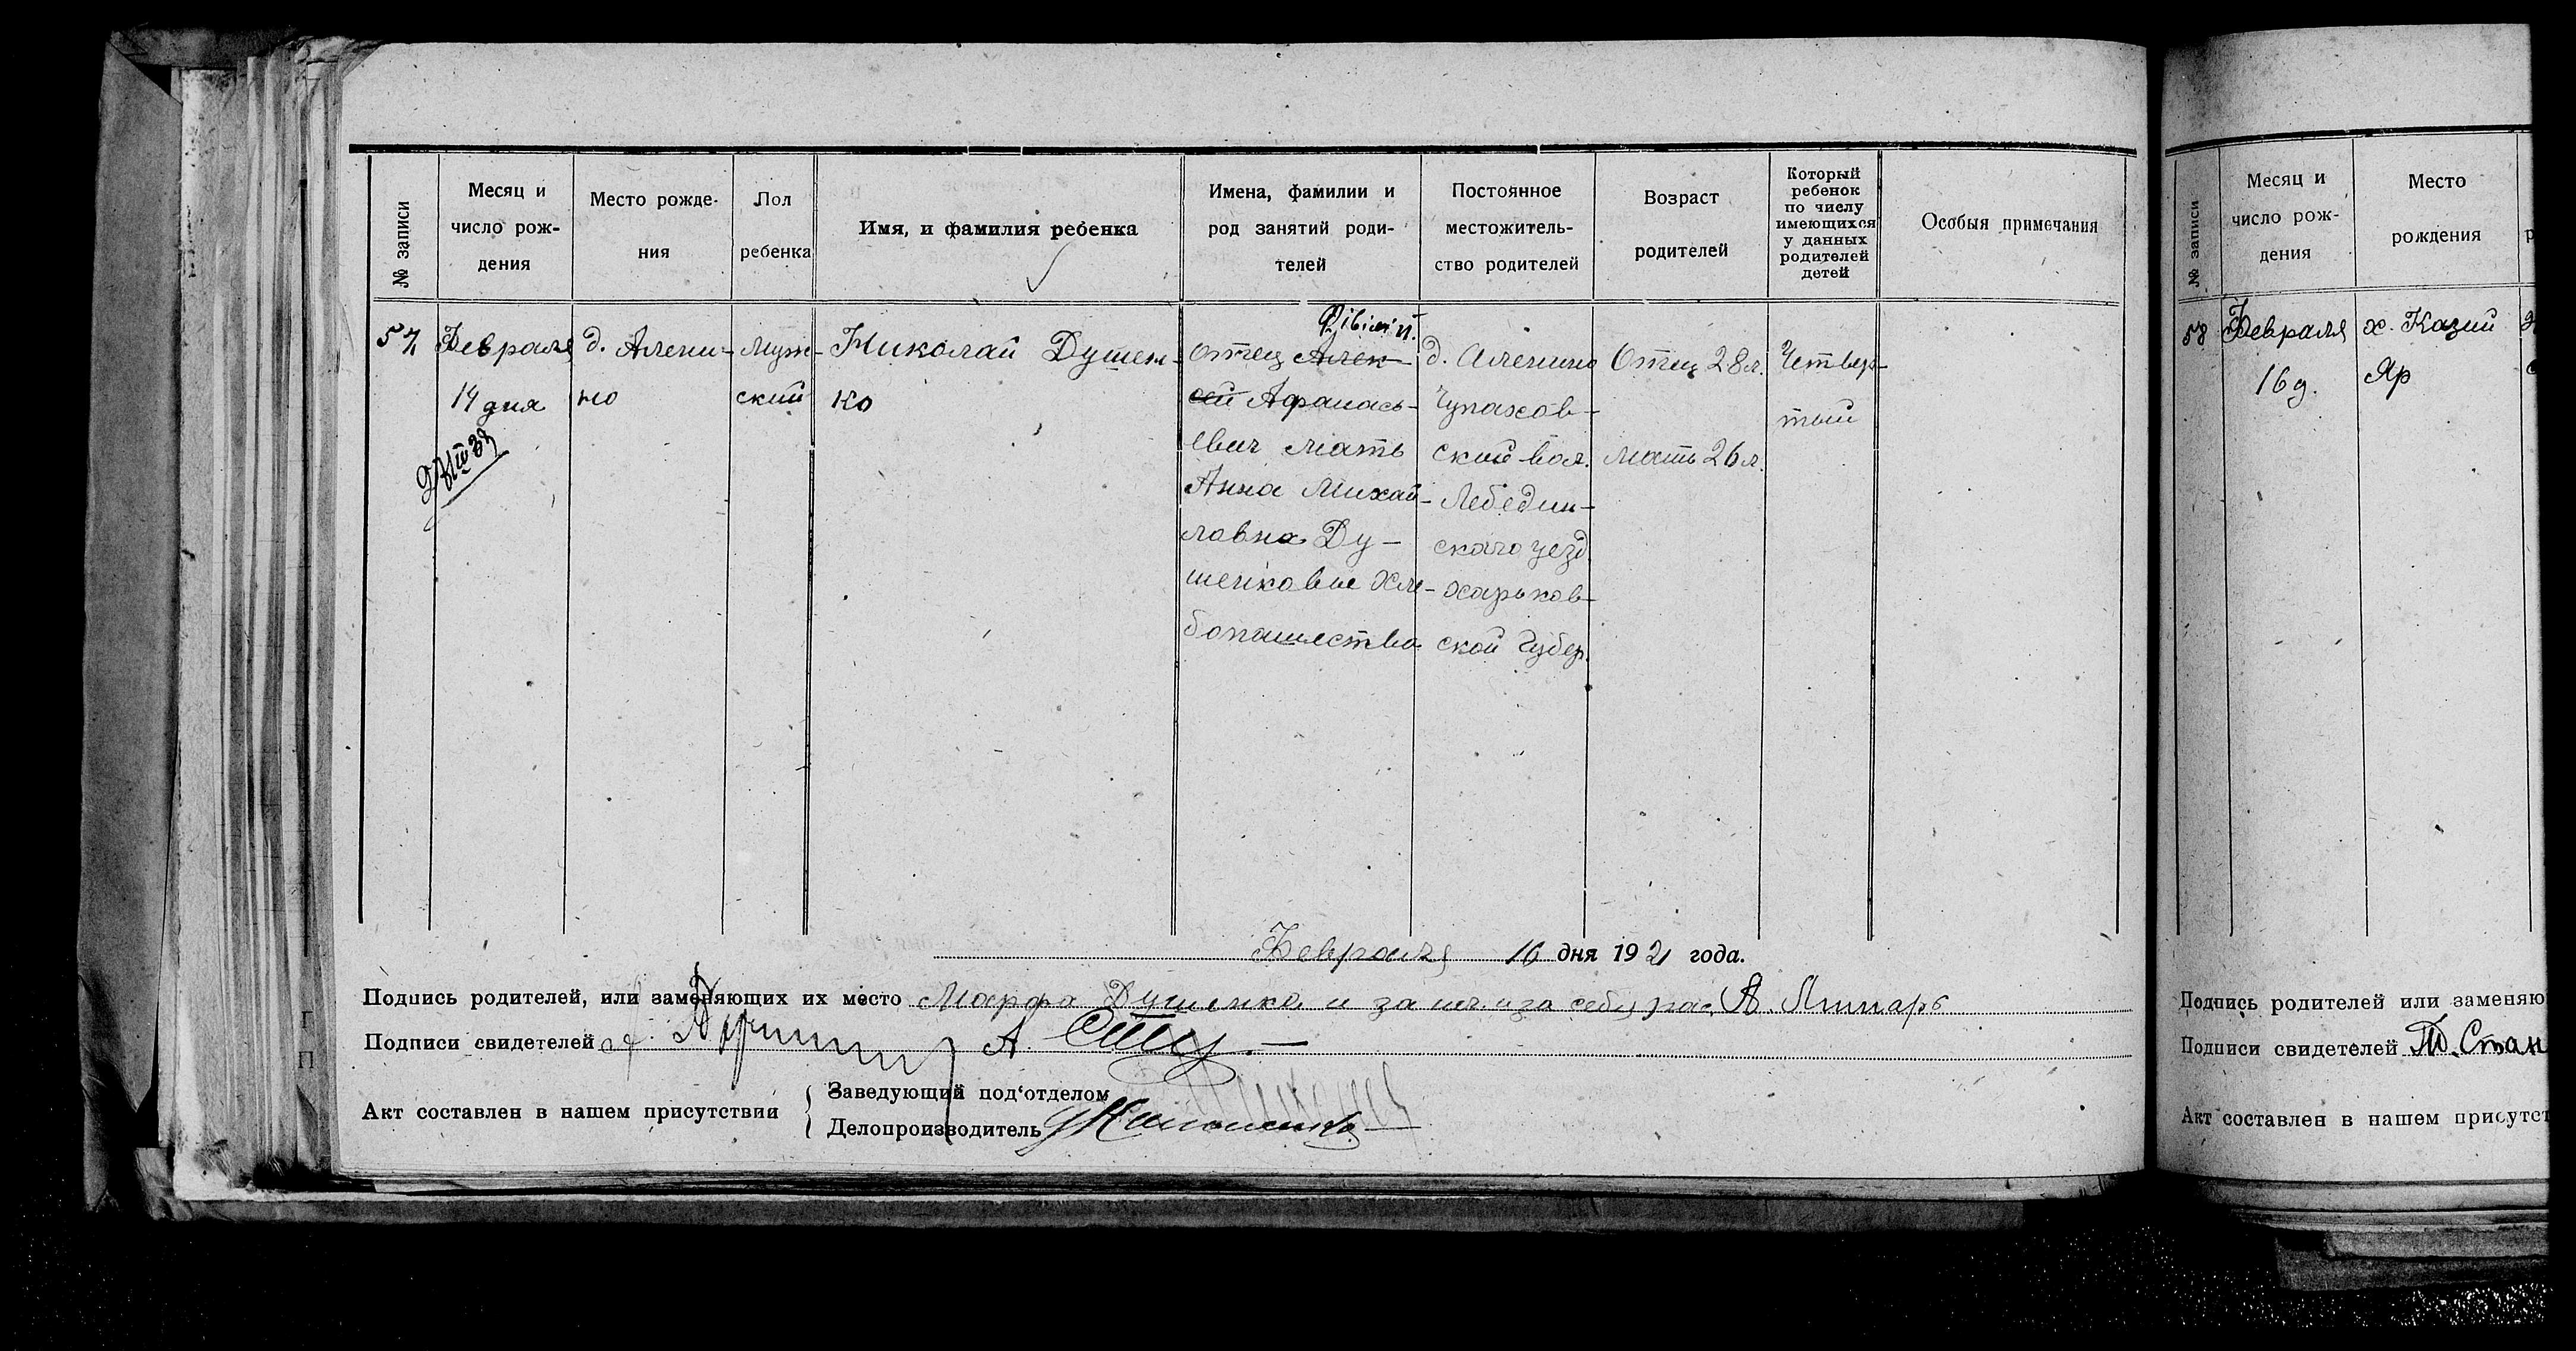 № записи
Месяц и число рож-дения
Место рожде-ния
Пол ребенка
Имя, и фамилия ребенка
Имена, фамилии и род занятий роди-телей
Постоянное местожитель-ство родителей
Возраст родителей
Который ребенок по числу имеющихся у данных родителей детей
Особыя примечания
57
Февраля
14 дня
д. Алени-
но
Муж-
ский
Николай Душен-
ко
отец Алек-
сей Афанась-
евич мать
Анна Михай-
ловна Ду-
шенковы хле-
бопашество
д. Аленино
Чупахов-
ской вол.
Лебедин-
ского уезд.
Харьков-
ской Губер.
Отец 28 л.
мать 26 л.
Четвер-
тый
Февраля 16 дня 1921 года.
Подпись родителей, или заменяющих их место Марфа Душенко и за
Подписи свидетелей А.
Акт составлен в нашем присутствии
Заведующий под‘отделом
Делопроизводитель
№ записи
Месяц и число рож-дения
Место рождения
58
Февраля
16 д.
х. Казий
Яр
Подпись родителей или заменяю
Подписи свидетелей Стан
Акт составлен в нашем присутст